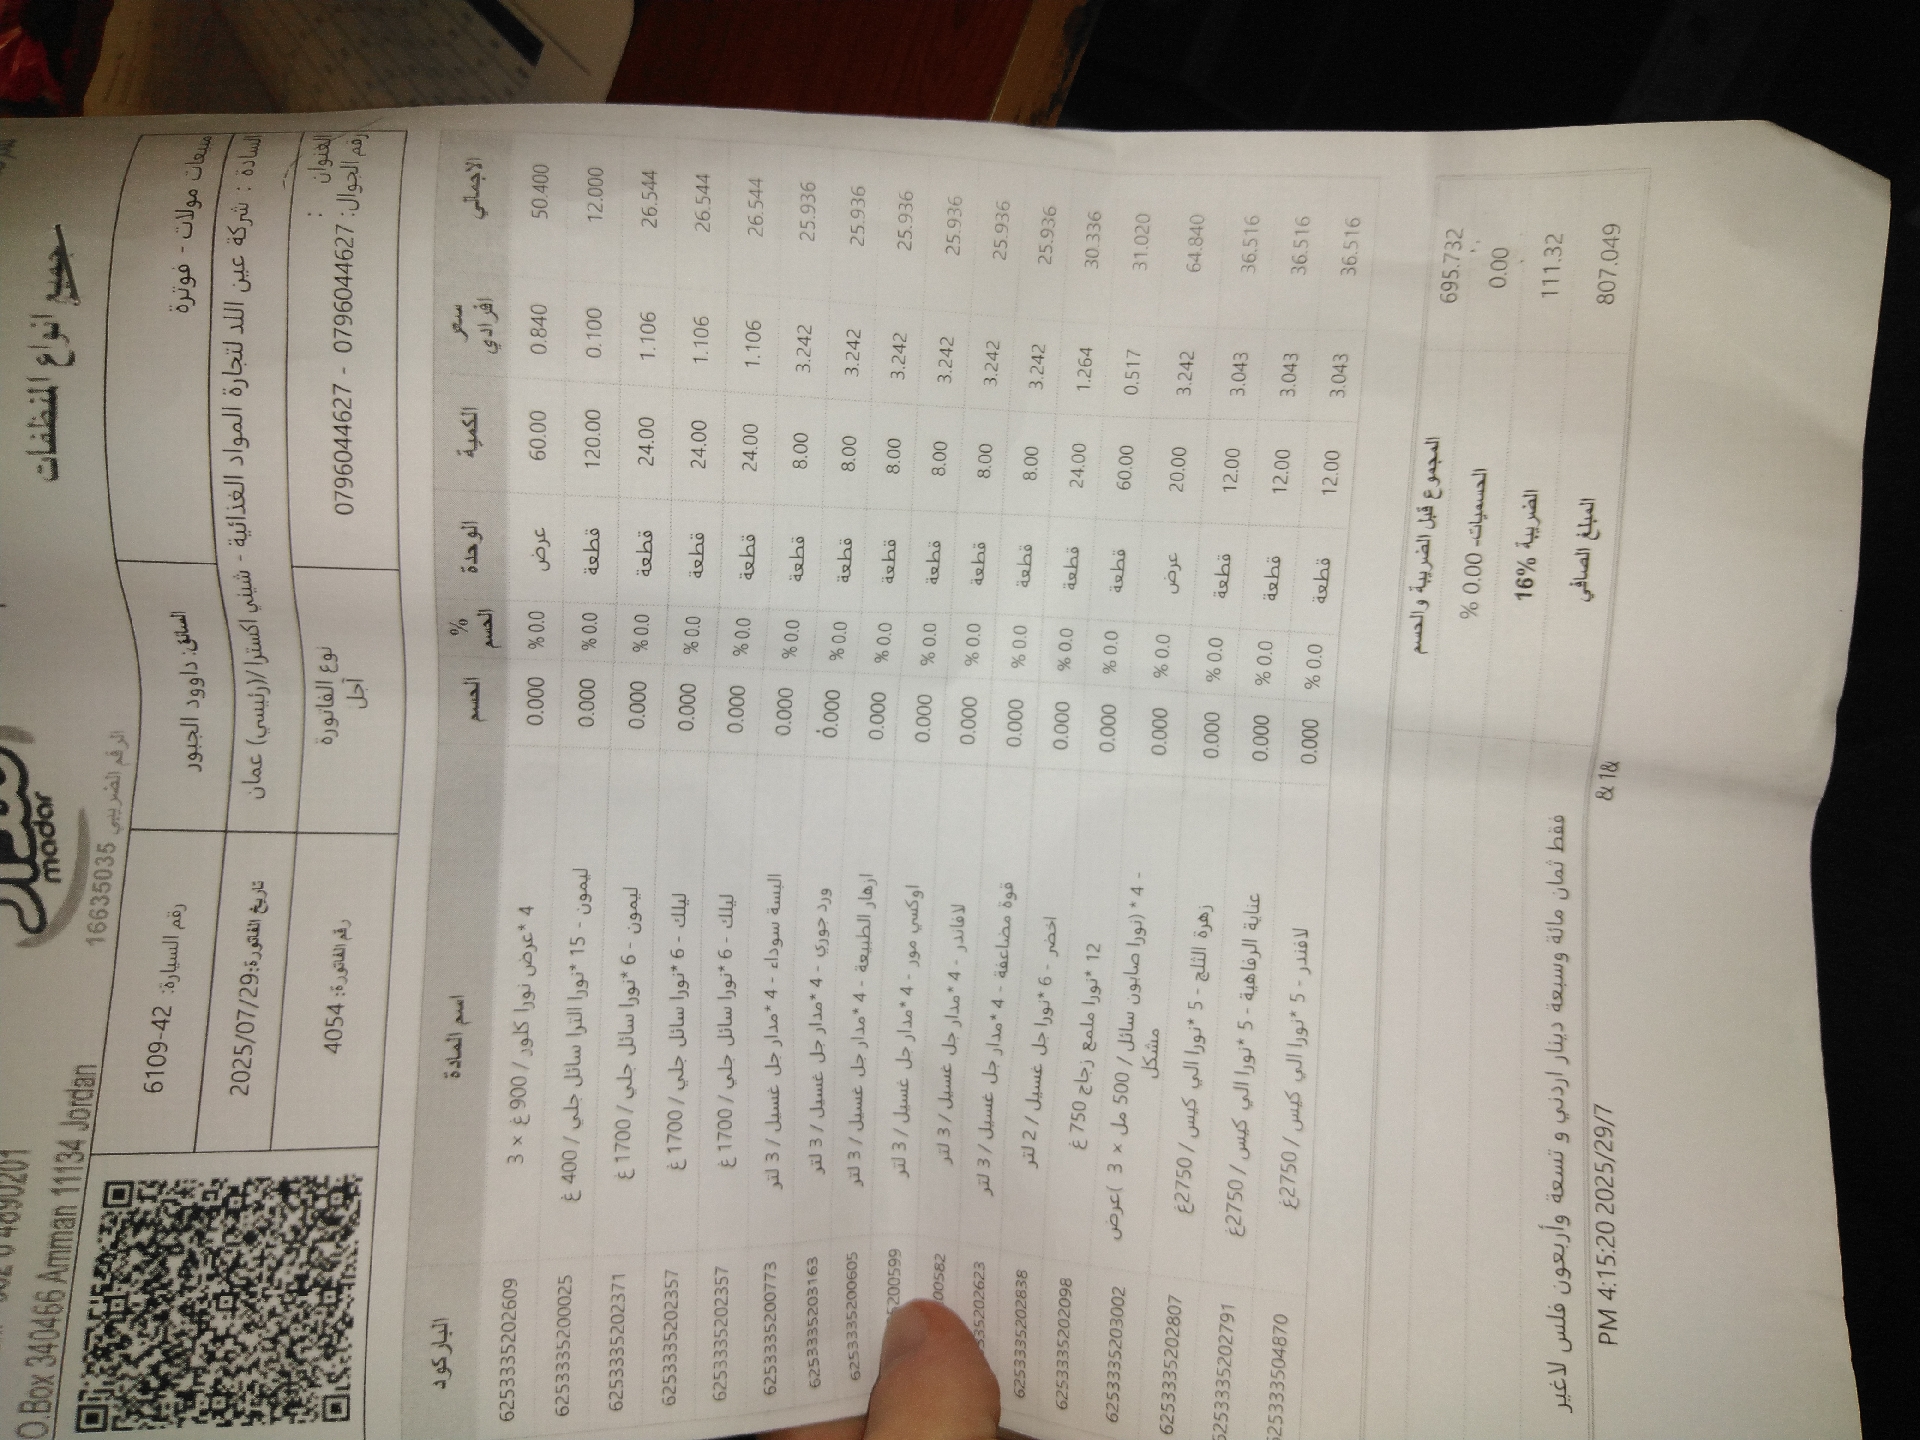 جميع انواع المنظفات
madar
O.Box 340466 Amman 11134 Jordan
الرقم الضريبي 16635035
مبيعات مولات - فوترة
السائق: داوود الجبور
رقم السيارة: 6109-42
السادة : شركة عين اللد لتجارة المواد الغذائية - شيني اكسترا/(رئيسي) عمان
تاريخ الفاتورة: 2025/07/29
العنوان :
رقم الجوال: 0796044627 - 0796044627
نوع الفاتورة
آجل
رقم الفاتورة: 4054
الباركود اسم المادة الحسم % الحسم الوحدة الكمية سعر افرادي الاجمالي
6253335202609 3 × عرض نورا كلور / 900 غ* 4 0.000 % 0.0 عرض 60.00 0.840 50.400
6253335200025 نورا الترا سائل جلي / 400 غ* 15 - ليمون 0.000 % 0.0 قطعة 120.00 0.100 12.000
6253335202371 نورا سائل جلي / 1700 غ* 6 - ليمون 0.000 % 0.0 قطعة 24.00 1.106 26.544
6253335202357 نورا سائل جلي / 1700 غ* 6 - ليلك 0.000 % 0.0 قطعة 24.00 1.106 26.544
6253335202357 نورا سائل جلي / 1700 غ* 6 - ليلك 0.000 % 0.0 قطعة 24.00 1.106 26.544
6253335200773 مدار جل غسيل / 3 لتر* 4 - البسة سوداء 0.000 % 0.0 قطعة 8.00 3.242 25.936
6253335203163 مدار جل غسيل / 3 لتر* 4 - ورد جوري 0.000 % 0.0 قطعة 8.00 3.242 25.936
6253335200605 مدار جل غسيل / 3 لتر* 4 - ازهار الطبيعة 0.000 % 0.0 قطعة 8.00 3.242 25.936
5200599 مدار جل غسيل / 3 لتر* 4 - اوكسي مور 0.000 % 0.0 قطعة 8.00 3.242 25.936
00582 مدار جل غسيل / 3 لتر* 4 - لافاندر 0.000 % 0.0 قطعة 8.00 3.242 25.936
335202623 مدار جل غسيل / 3 لتر* 4 - قوة مضاعفة 0.000 % 0.0 قطعة 8.00 3.242 25.936
6253335202838 نورا جل غسيل / 2 لتر* 6 - اخضر 0.000 % 0.0 قطعة 8.00 3.242 25.936
6253335202098 نورا ملمع زجاج 750 غ* 12 0.000 % 0.0 قطعة 24.00 1.264 30.336
6253335203002 عرض( 3 × نورا صابون سائل / 500 مل) * 4 - مشكل 0.000 % 0.0 قطعة 60.00 0.517 31.020
6253335202807 نورا الي كيس / 2750غ* 5 - زهرة الثلج 0.000 % 0.0 عرض 20.00 3.242 64.840
6253335202791 نورا الي كيس / 2750غ* 5 - عناية الرفاهية 0.000 % 0.0 قطعة 12.00 3.043 36.516
625333504870 نورا الي كيس / 2750غ* 5 - لافندر 0.000 % 0.0 قطعة 12.00 3.043 36.516
0.000 % 0.0 قطعة 12.00 3.043 36.516
المجموع قبل الضريبة والحسم 695.732
الحسميات- 0.00 % 0.00
الضريبة 16% 111.32
المبلغ الصافي 807.049
فقط ثمان مائة وسبعة دينار اردني و تسعة وأربعون فلس لاغير
PM 4:15:20 2025/29/7
& 1&